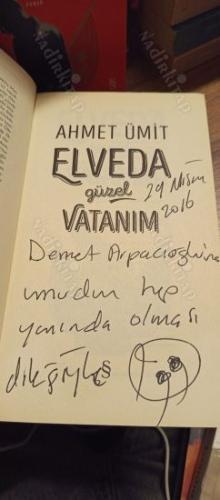 AHMET ÜMİT
ELVEDA
güzel
VATANIM
29 Nisan
2016
Demet Arpacıoğlu'na
umudun hep
yanında olması
dileğiyle
nadirkitap